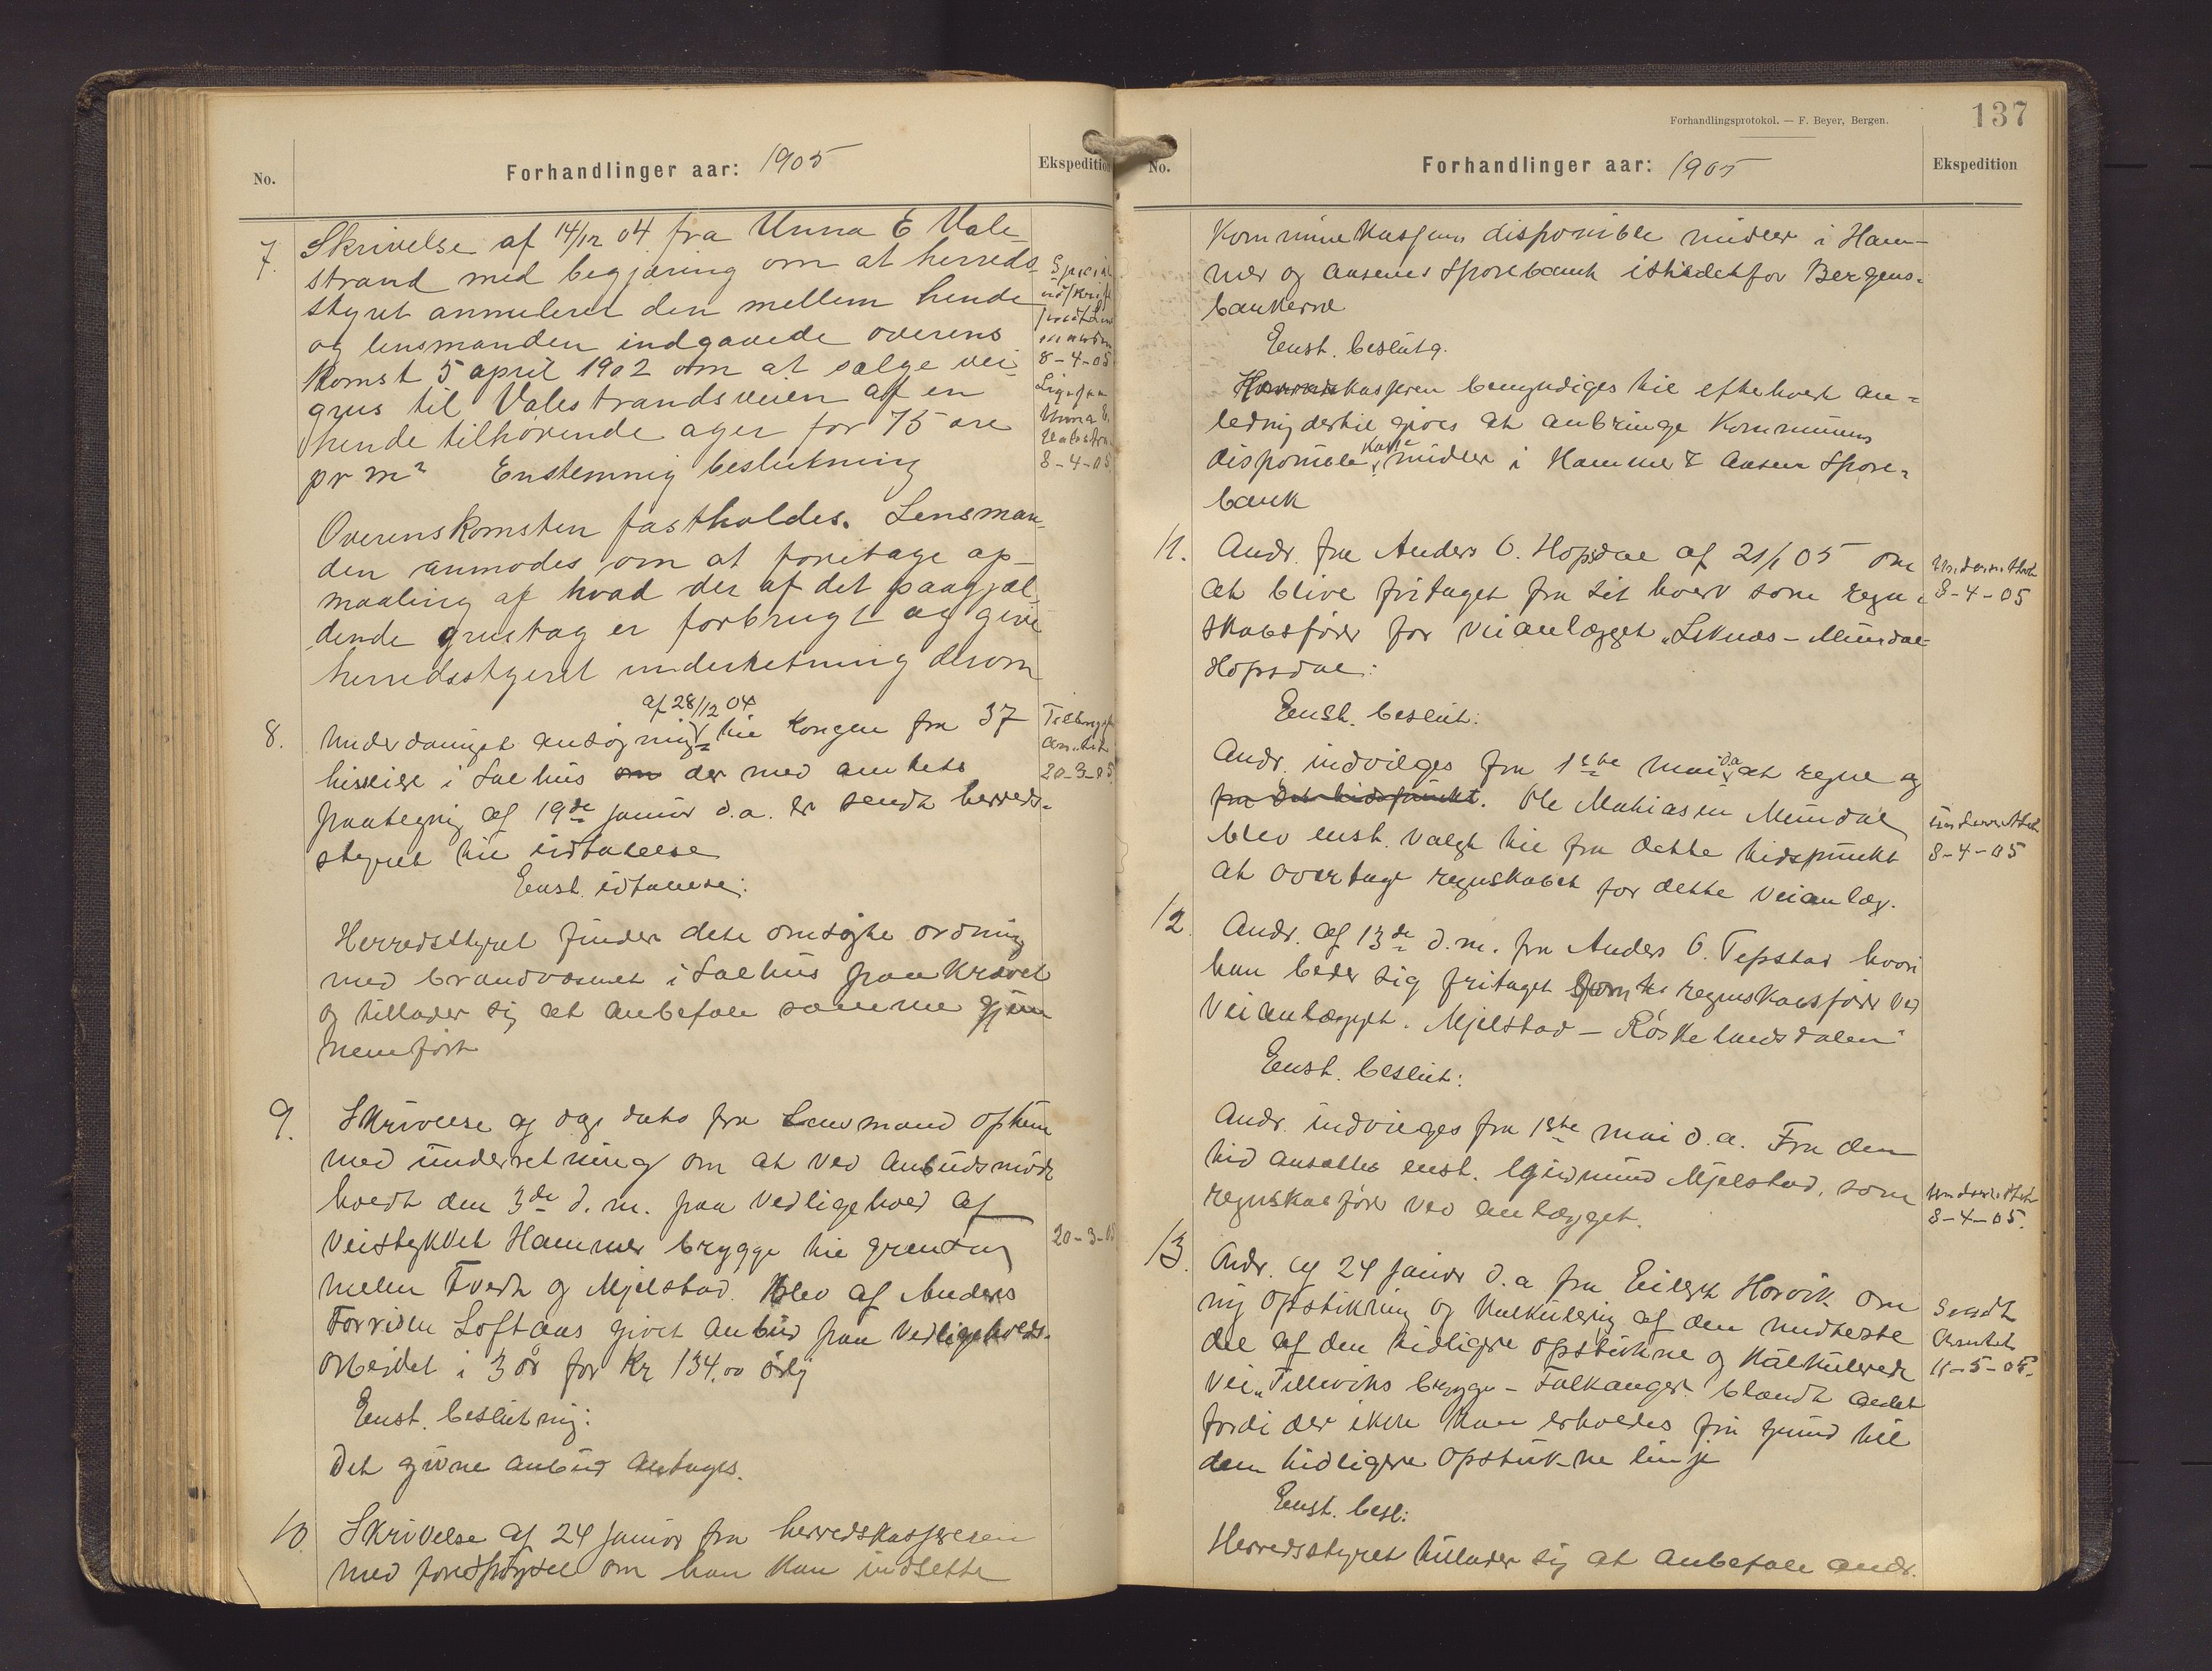 No.
Forhandlinger aar: 1905
Ekspedition
7. Skrivelse af 14/12 04 fra Unna E Vale-
strand med begjæring om at herreds
styret annulerer den mellem hende
og lensmanden indgaaede overens
komst 5 april 1902 om at sælge vei-
grus til Valestrandsveien af en
hende tilhørende ager for 75 øre
pr m² Enstemmig beslutning
Overenskomsten fastholdes. Lensman-
den anmodes om at foretage op-
maaling af hvad der af det paagjæl-
dende grustag er forbrugt og give
herredsstyret underretning derom
8-4-05
Unna E.
8-4-05
8. Underdanigst ansøgning af 28/12 04 til Kongen fra 37
huseiere i Salhus der med amtets
paategning af 19de januar d.a. er sendt herreds-
styret til udtalelse
Enst. udtalelse:
Herredsstyret finder det omsøgte ordning
med brandvæsenet i Salhus paakrævet
og tillader sig at anbefale samme gjen
nemført
20-3-05
9. Skrivelse af dags dato fra Lensmand
med underretning om at ved anbudsmøde
holdt den 3de d.m. paa vedligehold af
Veistykket Hammer brygge til grænsen
mellem Tvedt og Mjelstad. Blev af Anders
Loftaas givet anbud paa vedligeholds-
arbeidet i 3 år for Kr 134.00 årlig
Enst. beslutning:
Det givne anbud antages.
20-3-05
10. Skrivelse af 24 januar fra herredskassereren
med forespørgsel om han kan indsette
Forhandlingsprotokol. — F. Beyer, Bergen.
137
No.
Forhandlinger aar: 1905
Ekspedition
Kommunekassens disponible midler i Ham-
mer og Aasenes Sparebank istedetfor Bergens-
bankerne
Enst. beslutg.
kasseren bemyndiges til efterhvert an-
ledning dertil gives at anbringe Kommunens
disponible kasse midler i Hammer & Aasen Spare-
bank
11. Andr. fra Anders O. Hopsdal af 21/1 05 om
at blive fritaget fra sit hverv som regn-
skabsfører for veianlægget „Leknæs – Mundal
Hopsdal:
Enst. beslut:
Andr. indvilges fra 1ste mai d.a at regne og
fra det tidspunkt. Ole Mathiasen Mundal
blev enst. valgt til fra dette tidspunkt
at overtage regnskabet for dette veianlæg.
Underrettet
8-4-05
underrettet
8-4-05
12. Andr. af 13de d.m. fra Anders O. Tepstad hvori
han beder sig fritaget som regnskabsfører ved
Veianlægget. Mjelstad – Røskelandsdalen“
Enst. beslut:
Andr. indvilges fra 1ste mai d.a. Fra den
tid ansættes enst. Mjelstad. som
regnskabsfører ved anlægget.
Underrettet
8-4-05.
13. Andr. af 24 januar d.a fra Eilert Horvik om
ny opstikning og kalkulering af den nederste
del af den tidligere opstukne og kalkulerede
Vei „Telleviks brygge – Falkanger. blandt andet
fordi der ikke kan erholdes fri grund til
den tidligere opstukne linje
Enst. besl:
Herredsstyret tillader sig at anbefale andr.
Sendt
Amtet
11-5-05.